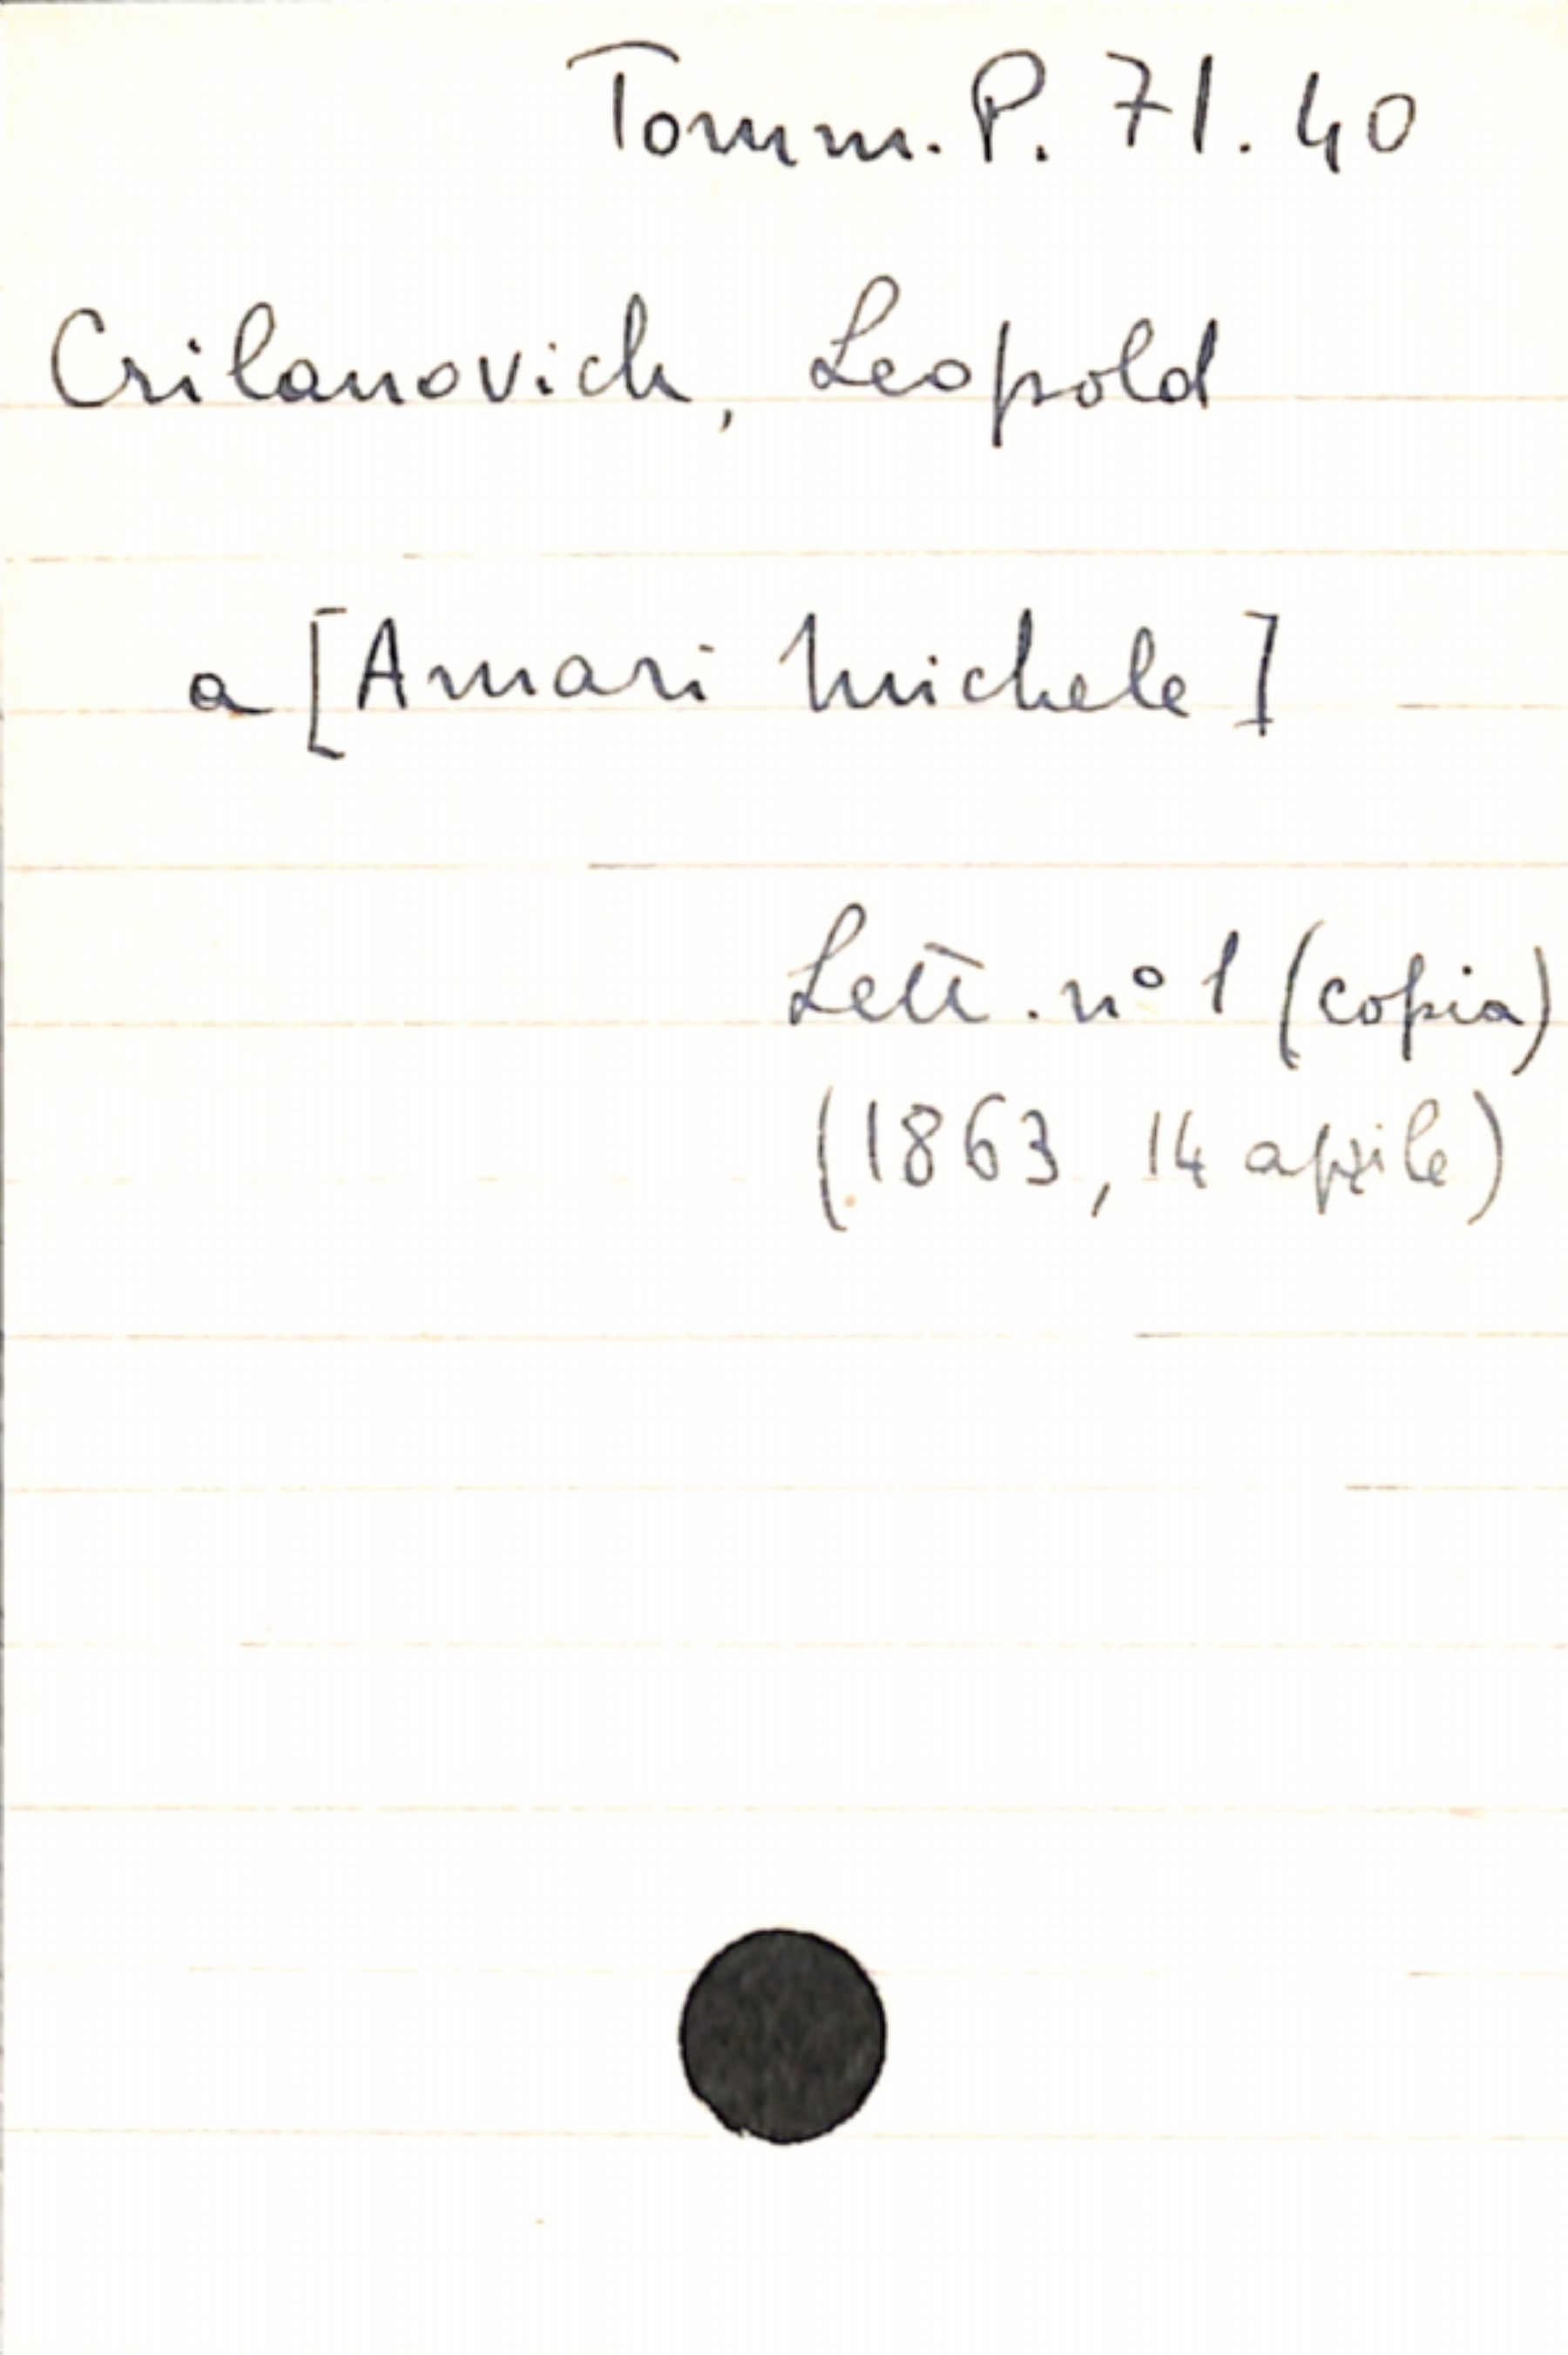 Tomm. P. 71. 40
Crilanovich, Leopold
a [Amari Michele]
Lett. n° 1 (copia)
(1863, 14 aprile)